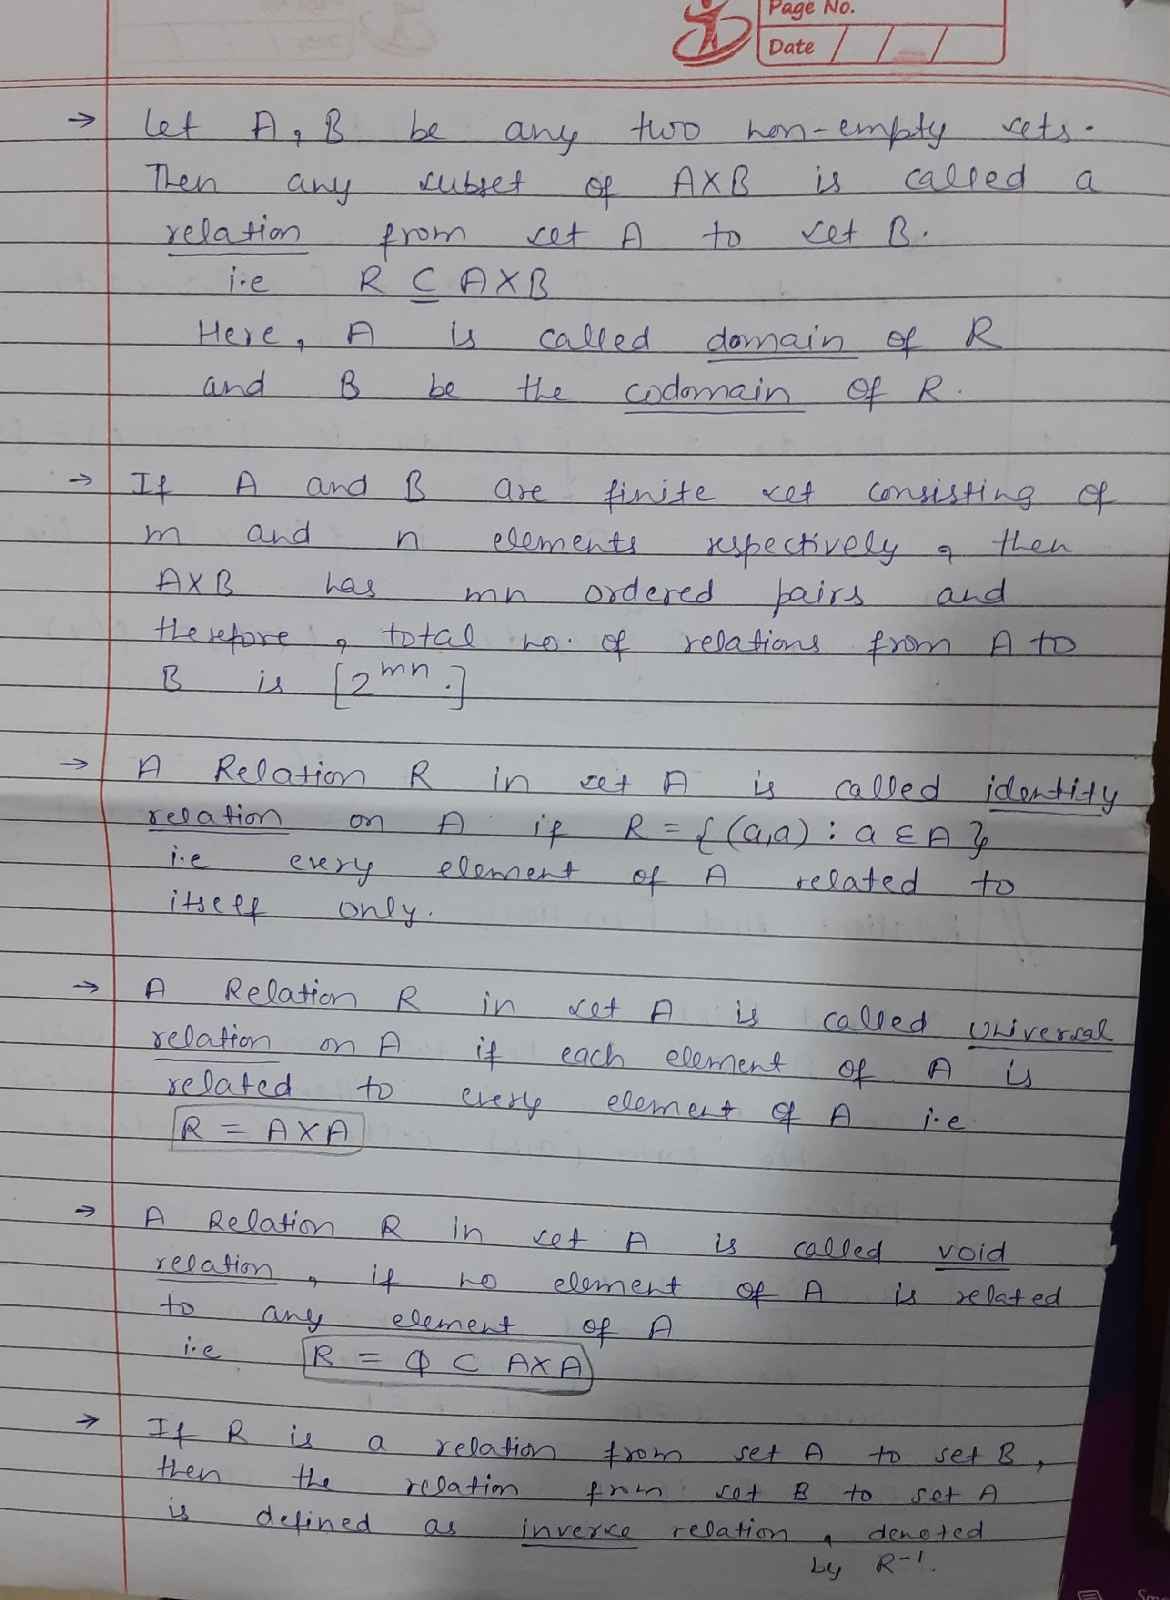 Page No.
Date / / /
→ Let A, B be any two non-empty sets.
Then any subset of A×B is called a
relation from set A to set B.
i.e R ⊆ A×B
Here, A is called domain of R
and B be the codomain of R.
→ If A and B are finite set consisting of
m and n elements respectively, then
A×B has mn ordered pairs and
therefore, total no. of relations from A to
B is [2^mn.]
→ A Relation R in set A is called identity
relation on A if R = {(a,a) : a ∈ A}
i.e every element of A related to
itself only.
→ A Relation R in set A is called universal
relation on A if each element of A is
related to every element of A i.e
R = A×A
→ A Relation R in set A is called void
relation, if no element of A is related
to any element of A
i.e R = ϕ ⊂ A×A
→ If R is a relation from set A to set B,
then the relation from set B to set A
is defined as inverse relation, denoted
by R⁻¹.